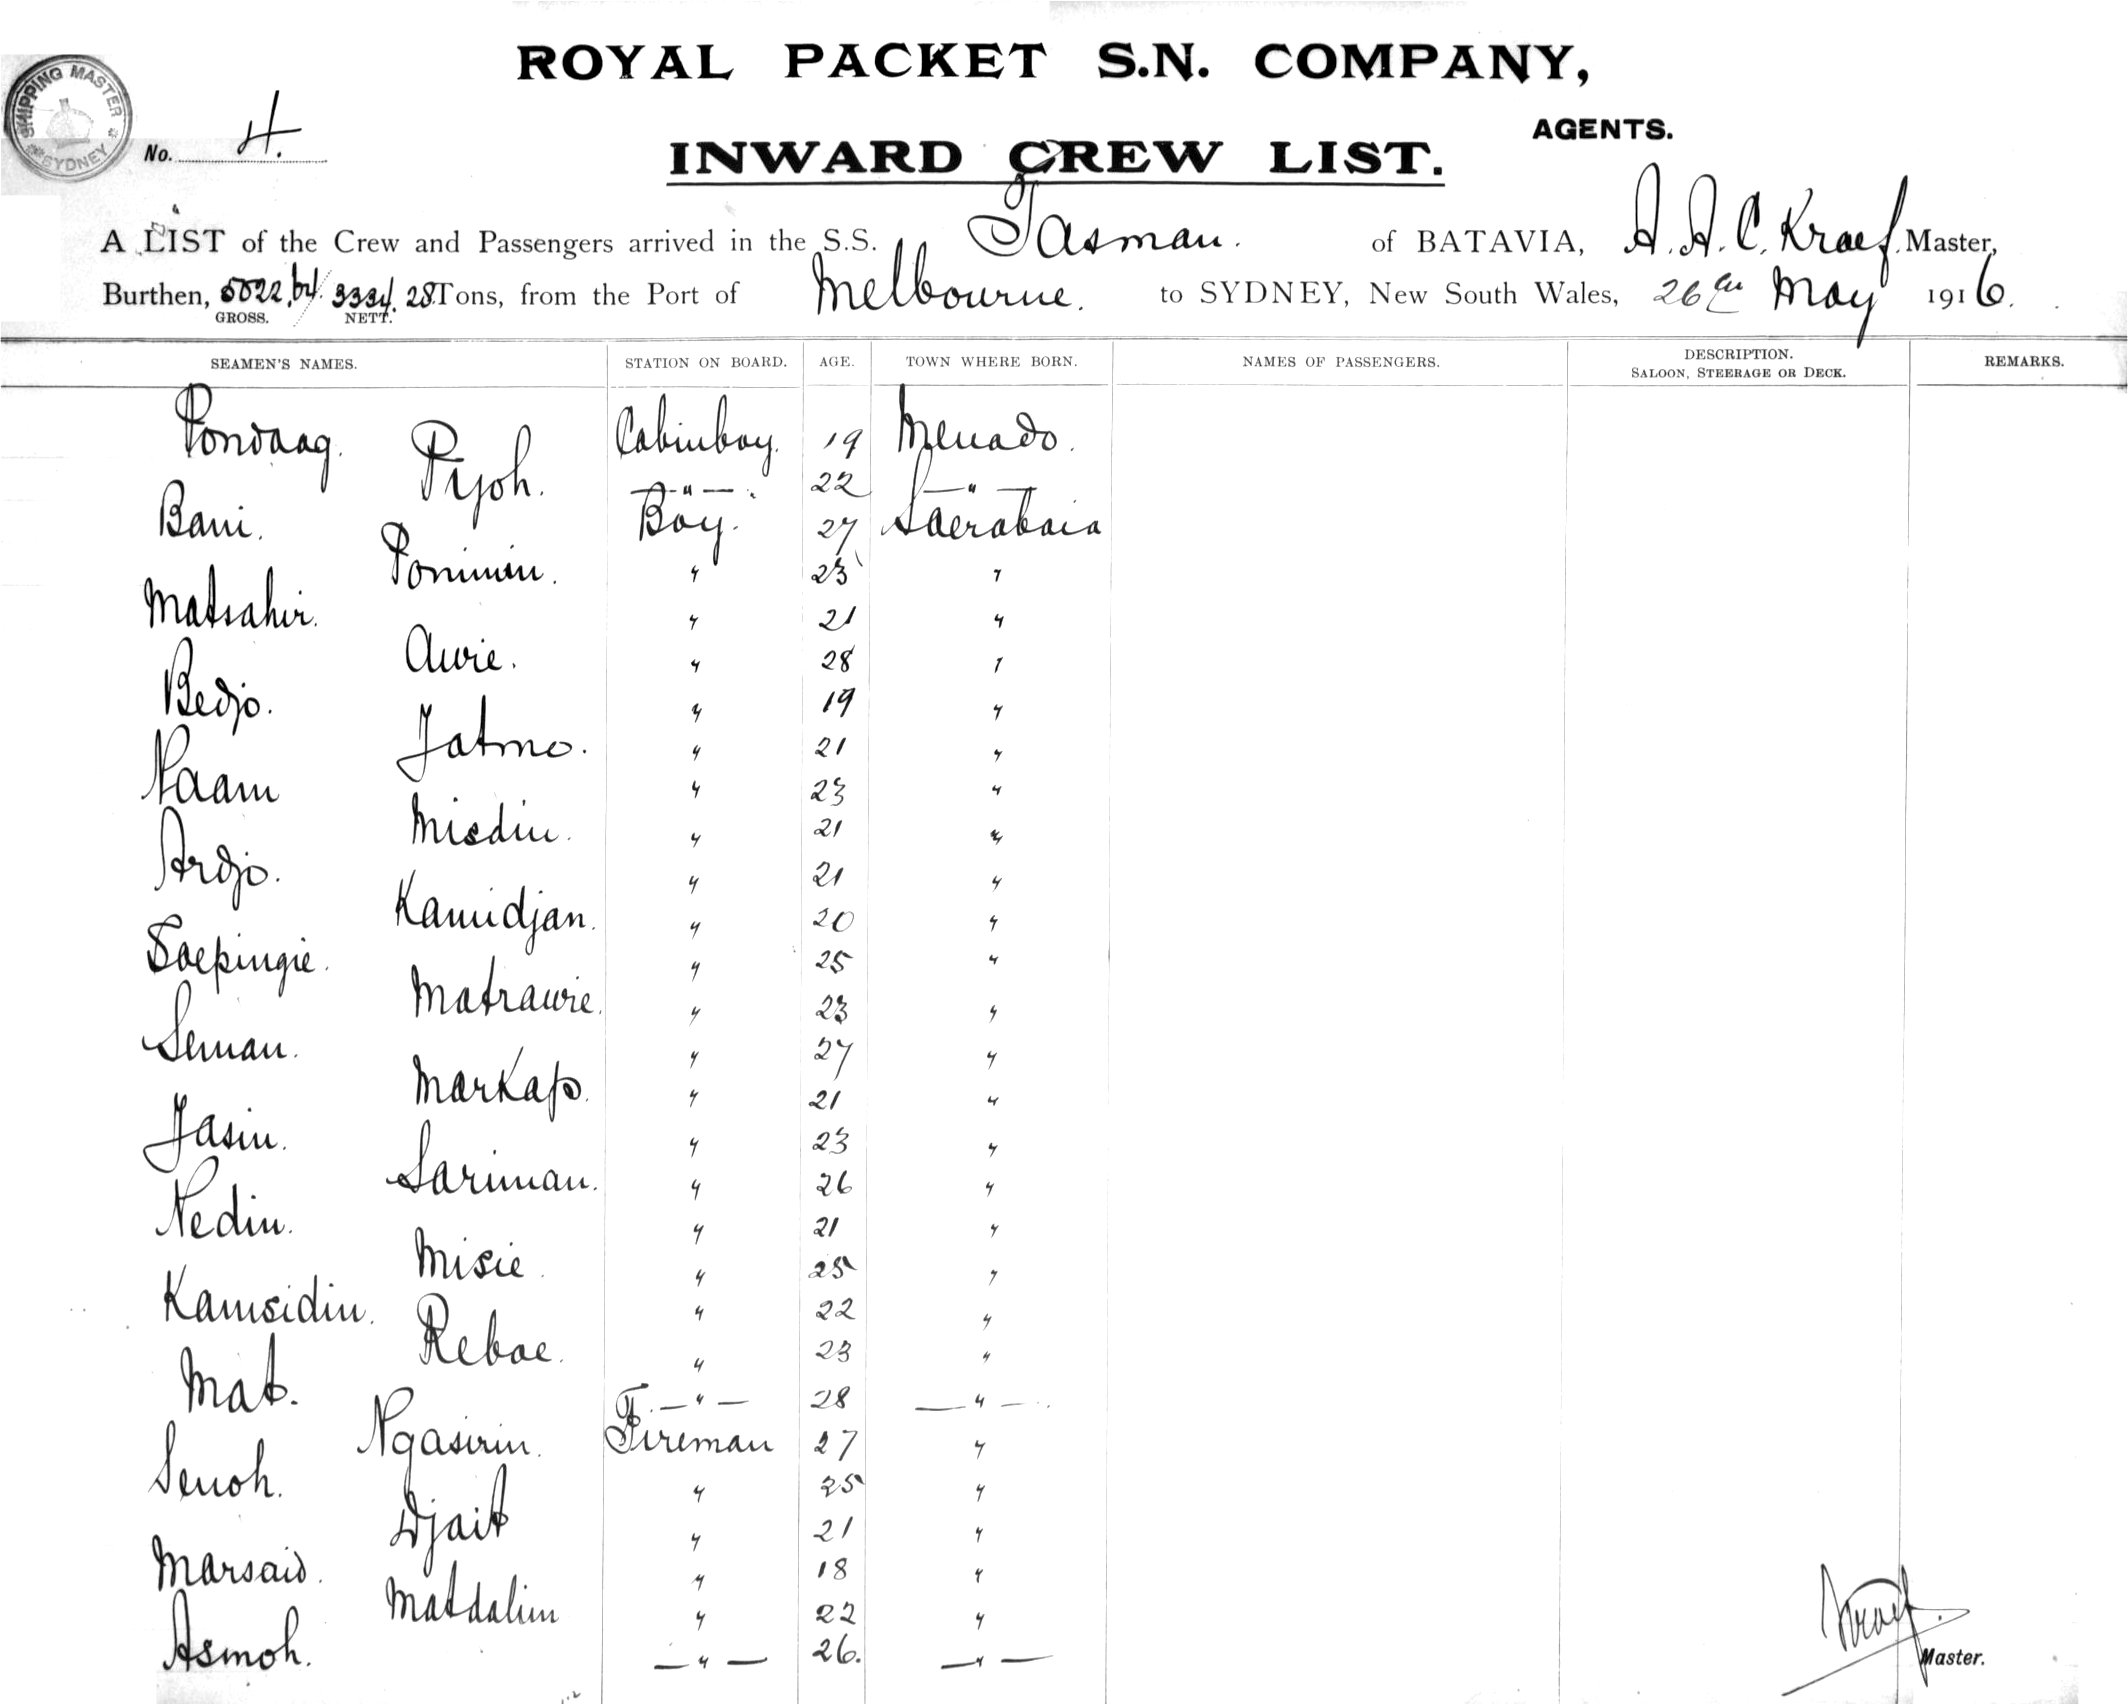 ROYAL PACKET S.N. COMPANY,
AGENTS.
SHIPPING MASTER SYDNEY
No. 4.
INWARD CREW LIST.
A LIST of the Crew and Passengers arrived in the S.S. Tasman. of BATAVIA, A. A. C. Kraef. Master,
Burthen, 5022,64 / 3334.28 Tons, from the Port of Melbourne. to SYDNEY, New South Wales, 26th May 1916.
GROSS. NETT.
SEAMEN'S NAMES. STATION ON BOARD. AGE. TOWN WHERE BORN. NAMES OF PASSENGERS. DESCRIPTION. SALOON, STEERAGE OR DECK. REMARKS.
Pondaag. Cabinboy. 19 Menado.
Pijoh. — " — . 22 — " —
Bani. Boy. 27 Soerabaia
Ponimin. " 23 "
Matsahir. " 21 "
Awie. " 28 "
Bedjo. " 19 "
Jatmo. " 21 "
Naam " 23 "
Misdin. " 21 "
Ardjo. " 21 "
Kamidjan. " 20 "
Soepingie. " 25 "
Matrawie. " 23 "
Seman. " 27 "
Markap. " 21 "
Jasin. " 23 "
Sariman. " 26 "
Nedin. " 21 "
Misie. " 25 "
Kamsidin. " 22 "
Reboe. " 23 "
Mat. — " — 28 — " —
Ngasirin. Fireman 27 "
Senoh. " 25 "
Djait " 21 "
Marsaid. " 18 "
Matdalim " 22 "
Asmoh. — " — 26. — " —
Kraef.
Master.